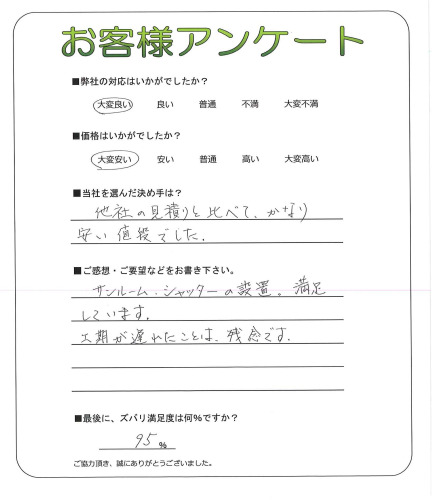 お客様アンケート
■弊社の対応はいかがでしたか？
大変良い 良い 普通 不満 大変不満
■価格はいかがでしたか？
大変安い 安い 普通 高い 大変高い
■当社を選んだ決め手は？
他社の見積りと比べて、かなり
安い値段でした。
■ご感想・ご要望などをお書き下さい。
サンルーム・シャッターの設置。満足
しています。
工期が遅れたことは、残念です。
■最後に、ズバリ満足度は何％ですか？
95 %
ご協力頂き、誠にありがとうございました。